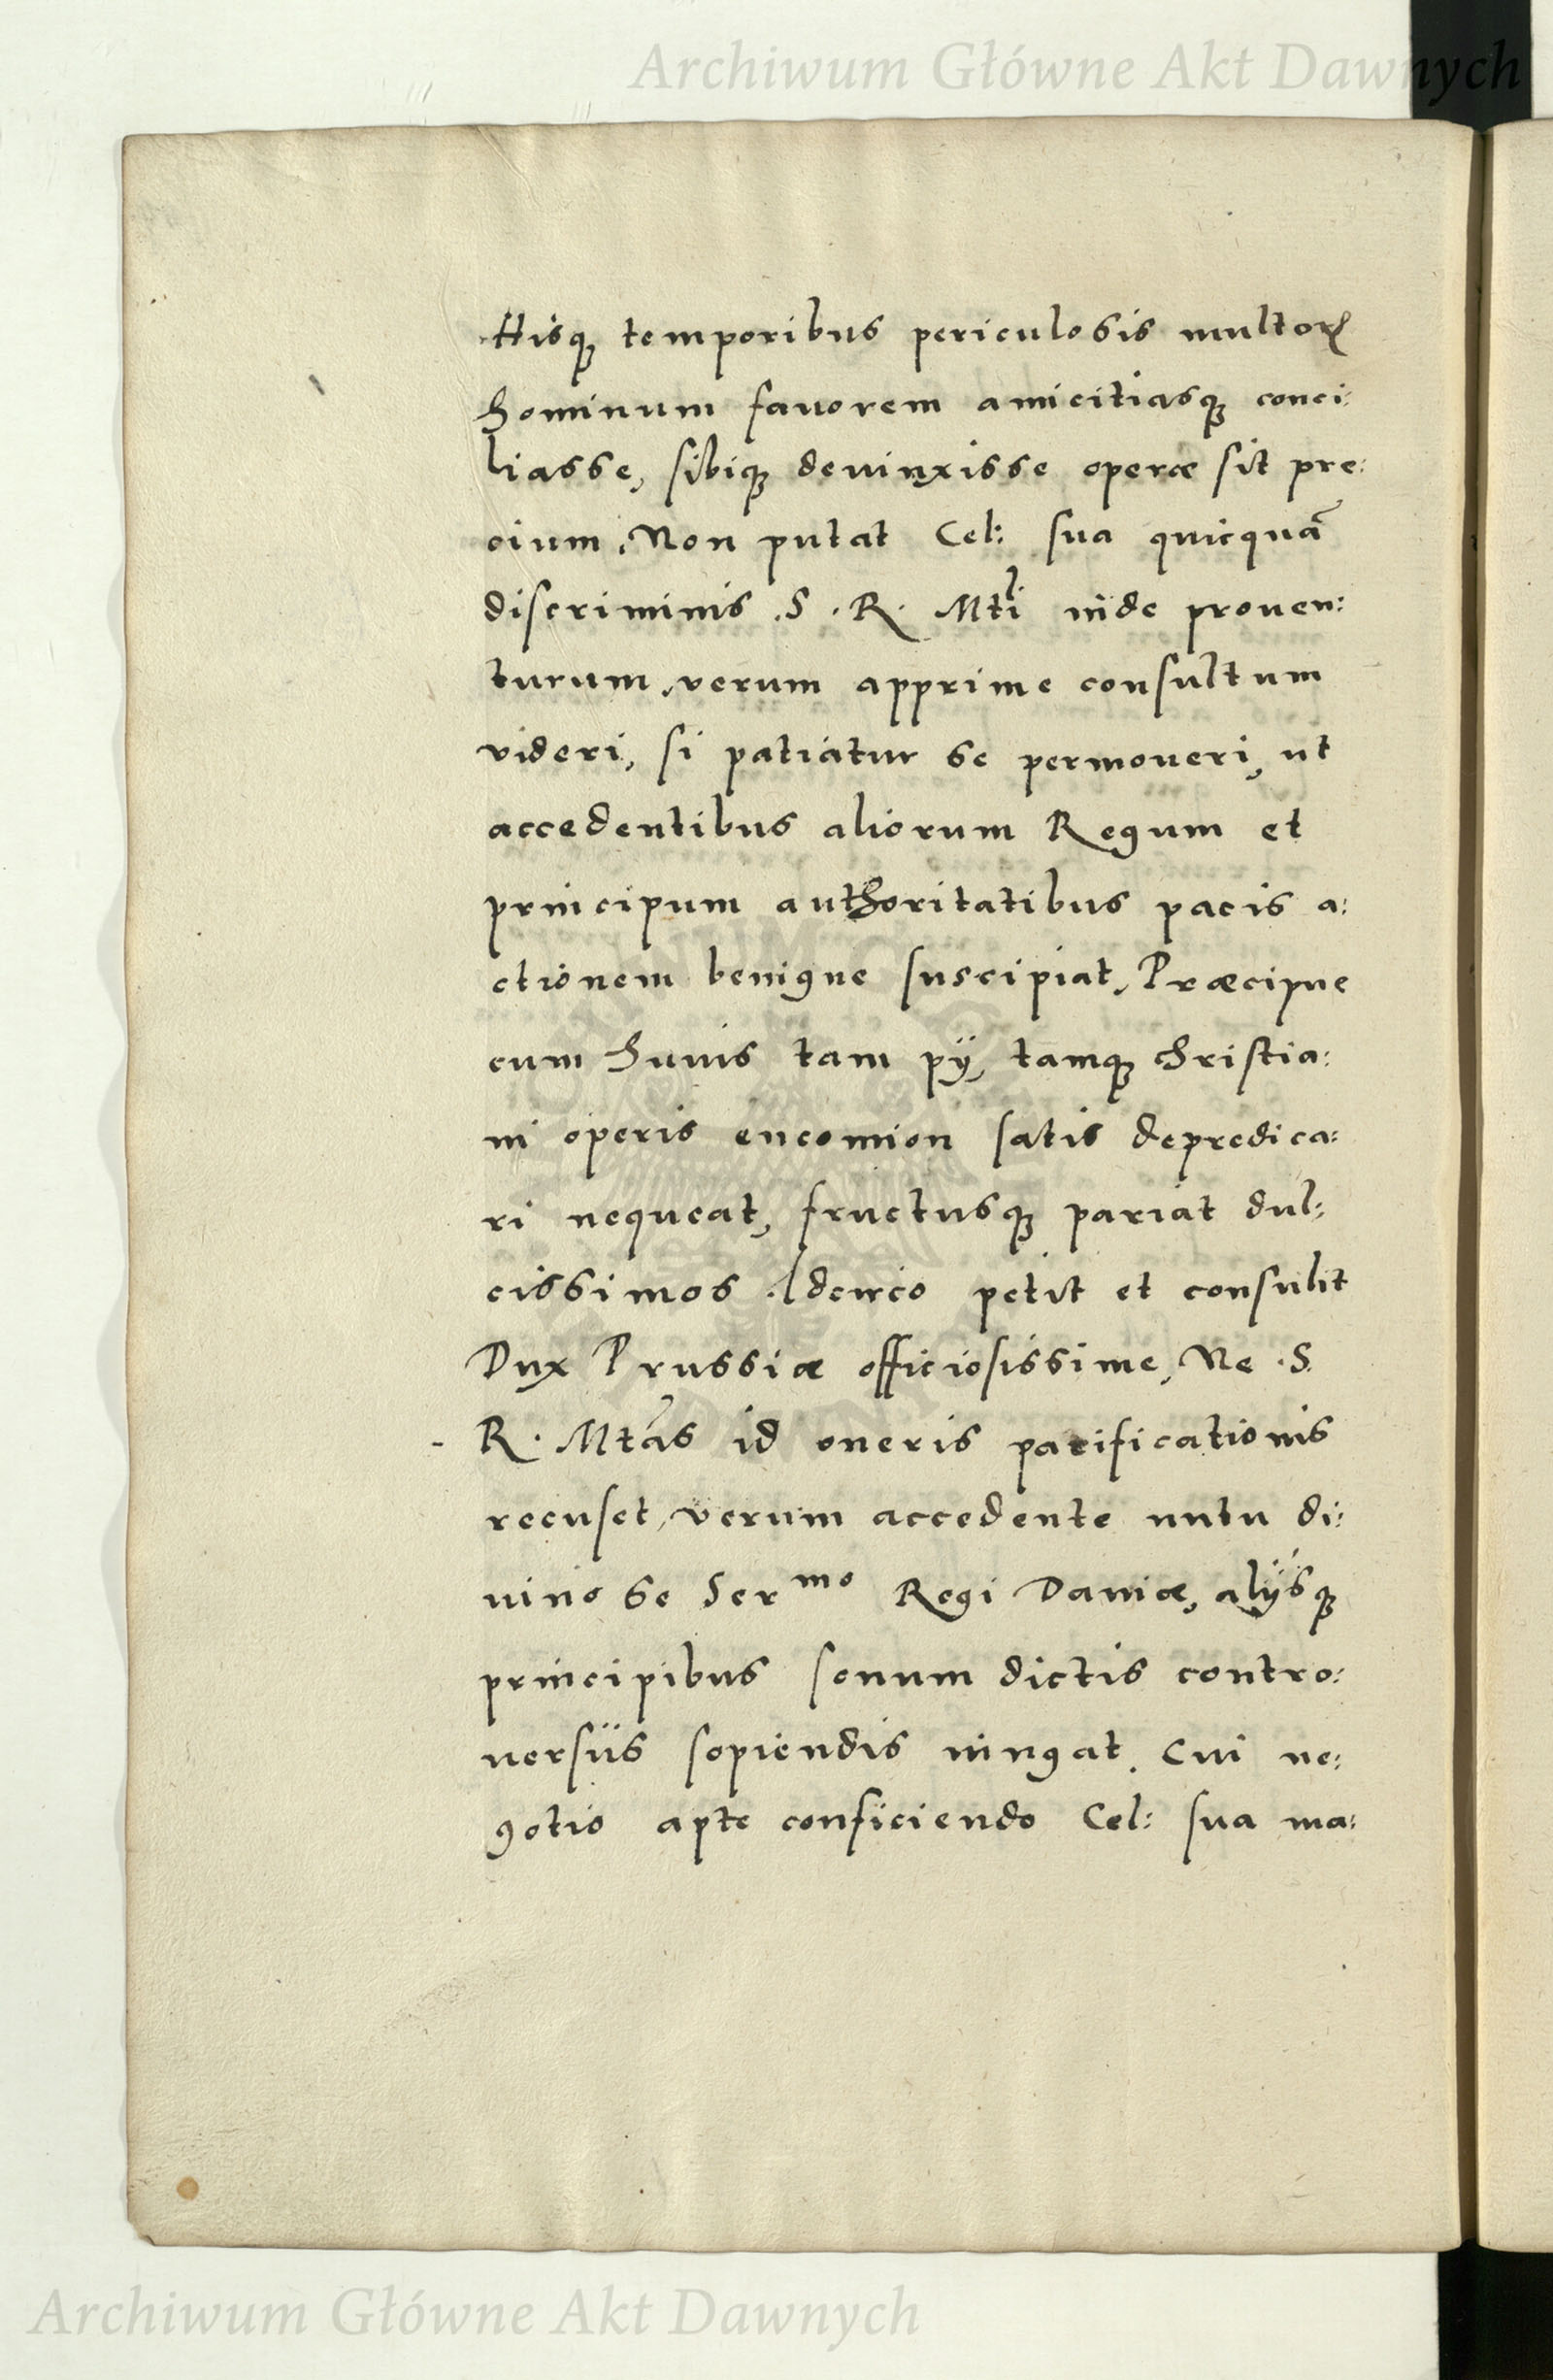 Archiwum Główne Akt Dawnych
Hisq₃ temporibus periculosis multoꝝ
hominum fauorem amicitiasq₃ conci:
liasse, sibiq₃ deuinxisse operæ sit pre:
cium. Non putat Cel: sua quicquā
discriminis .S. R. Mtī inde prouen:
turum, verum apprime consultum
videri, si patiatur se permoueri, ut
accedentibus aliorum Regum et
principum authoritatibus pacis a:
ctionem benigne suscipiat, Præcipue
cum huius tam pÿ, tamq₃ christia:
ni operis encomion satis depredica:
ri nequeat, fructusq₃ pariat dul:
cissimos. Idcirco petit et consulit
Dux Prussiæ officiosissime, Ne .S.
R. Mtās id oneris pacificationis
recuset, verum accedente nutu di:
uino se Ser^mo Regi Daniæ, alÿsq₃
principibus senum dictis contro:
uersiis sopiendis iungat. Cui ne:
gotio apte conficiendo Cel: sua ma:
Archiwum Główne Akt Dawnych